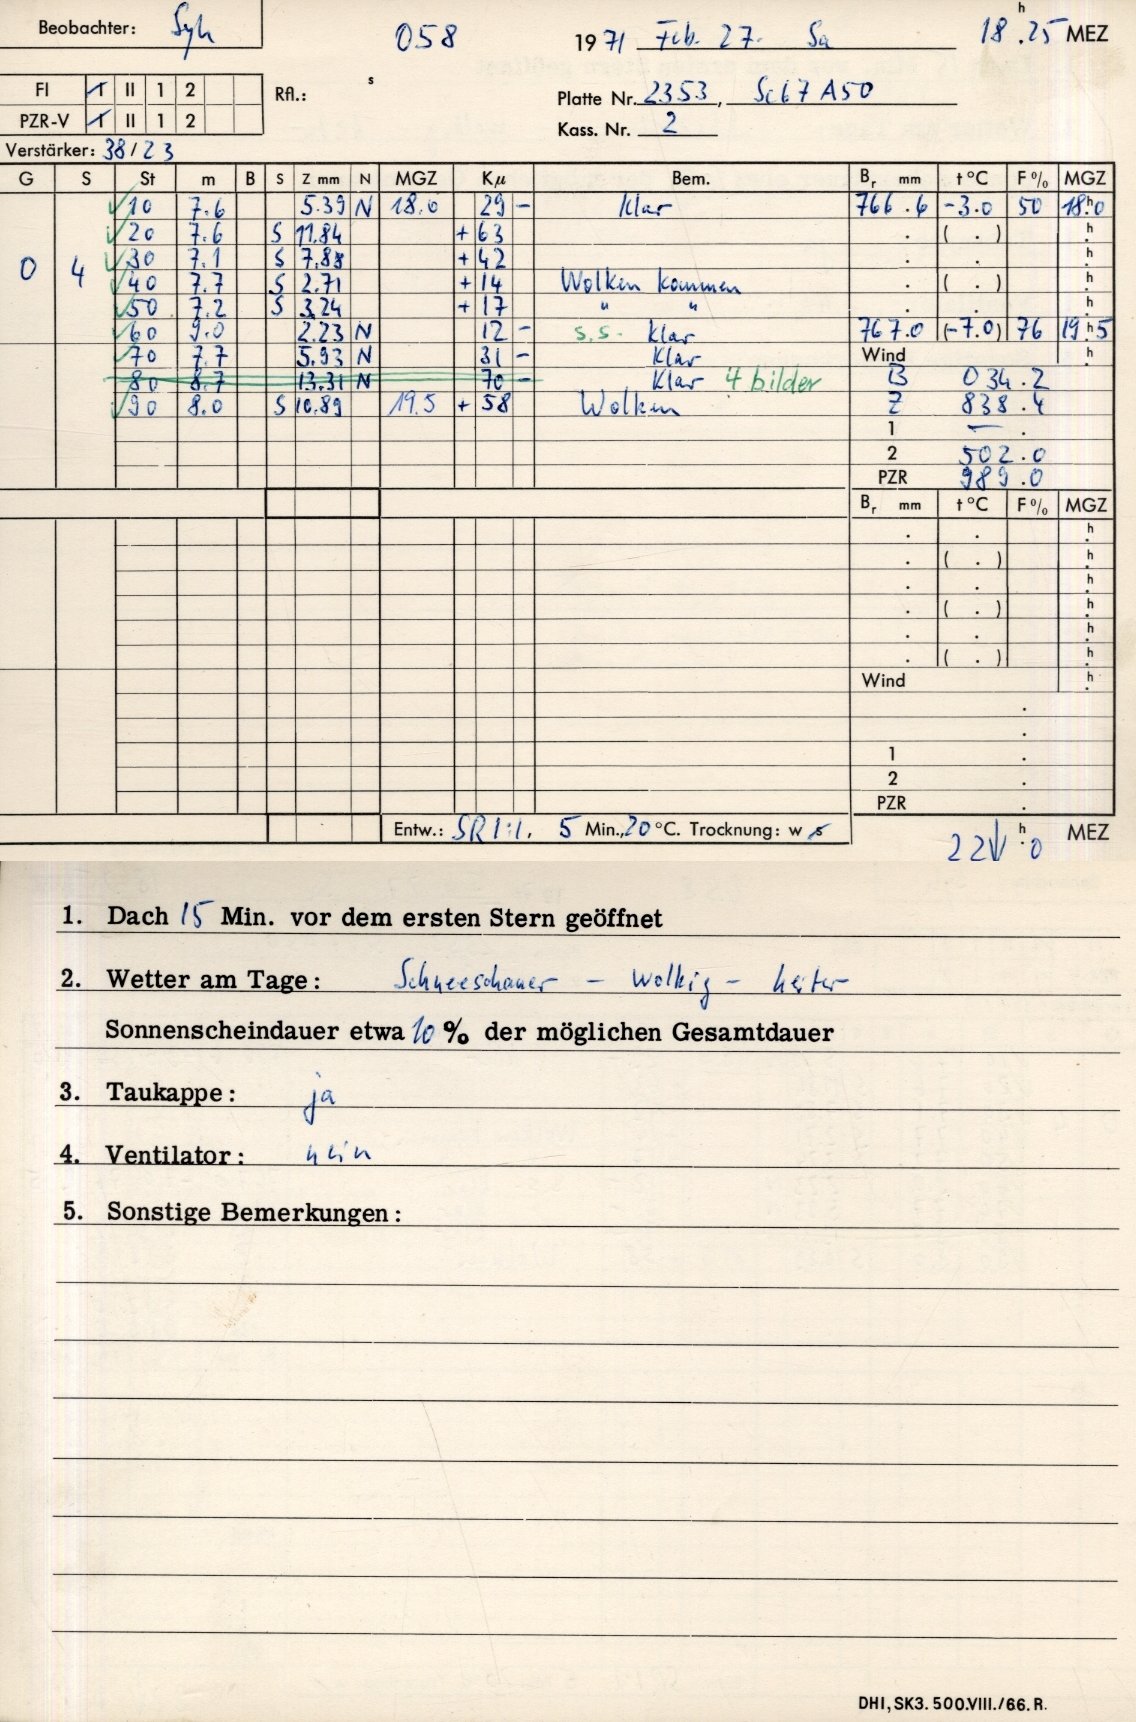 Beobachter: Syh 058 1971 Feb. 27. Sa 18h.25 MEZ
FI I II 1 2 Rfl.: s Platte Nr. 2353, Sc67A50
PZR-V I II 1 2 Kass. Nr. 2
Verstärker: 38/23
G S St m B S Z mm N MGZ Kμ Bem. Br mm t °C F% MGZ
10 7.6 5.39 N 18.0 29 - Klar 766.6 -3.0 50 18h.0
20 7.6 S 11.84 + 63 . ( . ) h.
0 4 30 7.1 S 7.88 + 42 . . h.
40 7.7 S 2.71 + 14 Wolken kommen . ( . ) h.
50 7.2 S 3.24 + 17 " " . . h.
60 9.0 2.23 N 12 - S.S. Klar 767.0 (-7.0) 76 19h.5
70 7.7 5.93 N 31 - Klar Wind h
80 8.7 13.31 N 70 - Klar 4 bilder B 034.2
90 8.0 S 10.89 19.5 + 58 Wolken Z 838.4
1 — .
2 502.0
PZR 989.0
Br mm t °C F% MGZ
. . h.
. ( . ) h.
. . h.
. ( . ) h.
. . h.
. ( . ) h.
Wind h.
.
.
1 .
2 .
PZR .
Entw.: SR 1:1. 5 Min., 20 °C. Trocknung: w s 22h.0 MEZ
1. Dach 15 Min. vor dem ersten Stern geöffnet
2. Wetter am Tage: Schneeschauer - Wolkig - heiter
Sonnenscheindauer etwa 10 % der möglichen Gesamtdauer
3. Taukappe: ja
4. Ventilator: nein
5. Sonstige Bemerkungen:
DHI, SK3. 500.VIII./66. R.